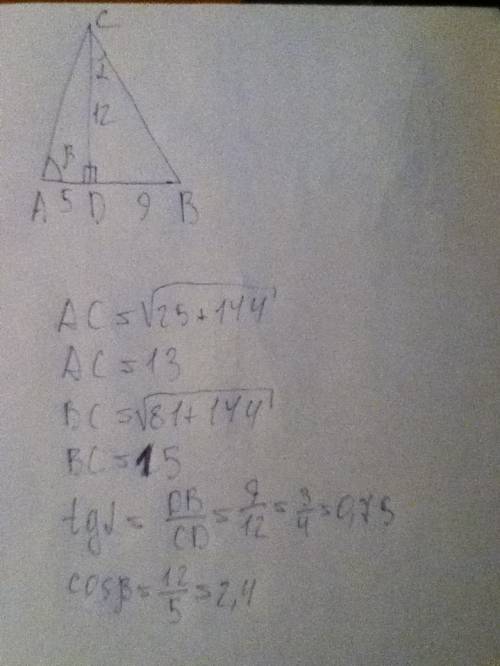 C
α
12
β
A 5 D 9 B
AC = √25+144
AC = 13
BC = √81+144
BC = 15
tgα = DB/CD = 9/12 = 3/4 = 0,75
cosβ = 12/5 = 2,4